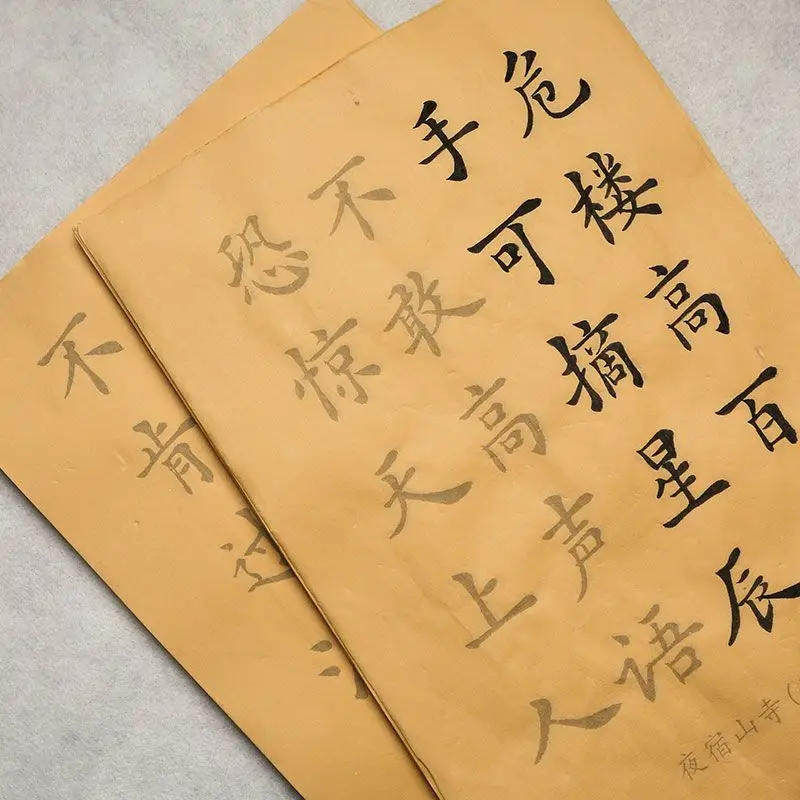 危楼高百
手可摘星辰
不敢高声语
恐惊天上人
夜宿山寺（
不肯过江